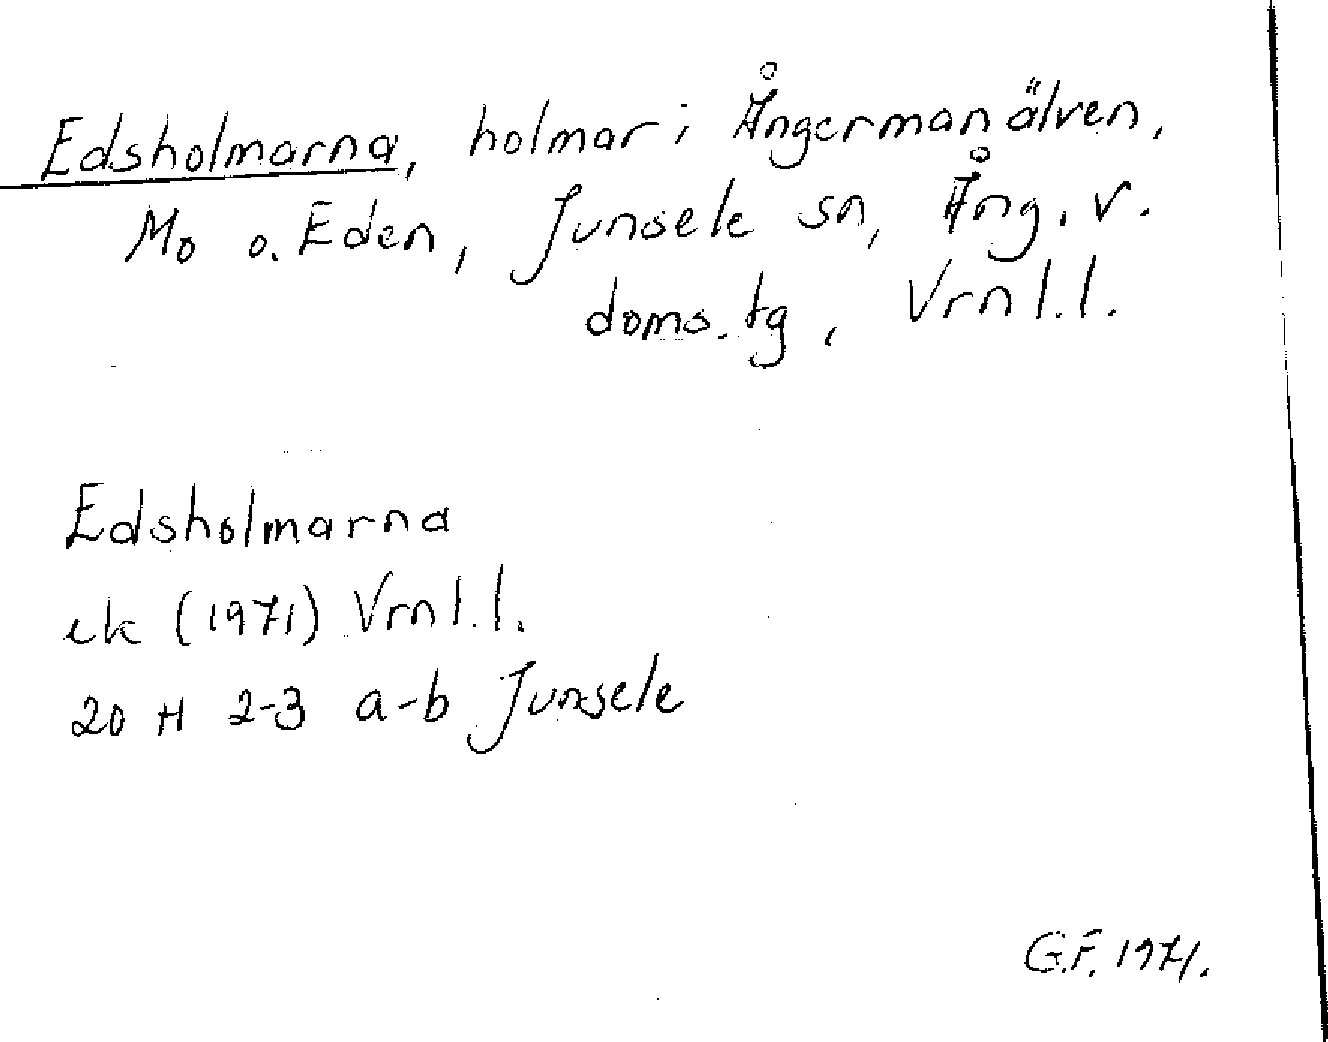 Edsholmarna, holmar i Ångermanälven,
Mo o. Eden, Junsele sn, Ång. v.
doms. tg, Vrnl.l.
Edsholmarna
ek (1971) Vrnl.l.
20 H 2-3 a-b Junsele
G.F. 1971.